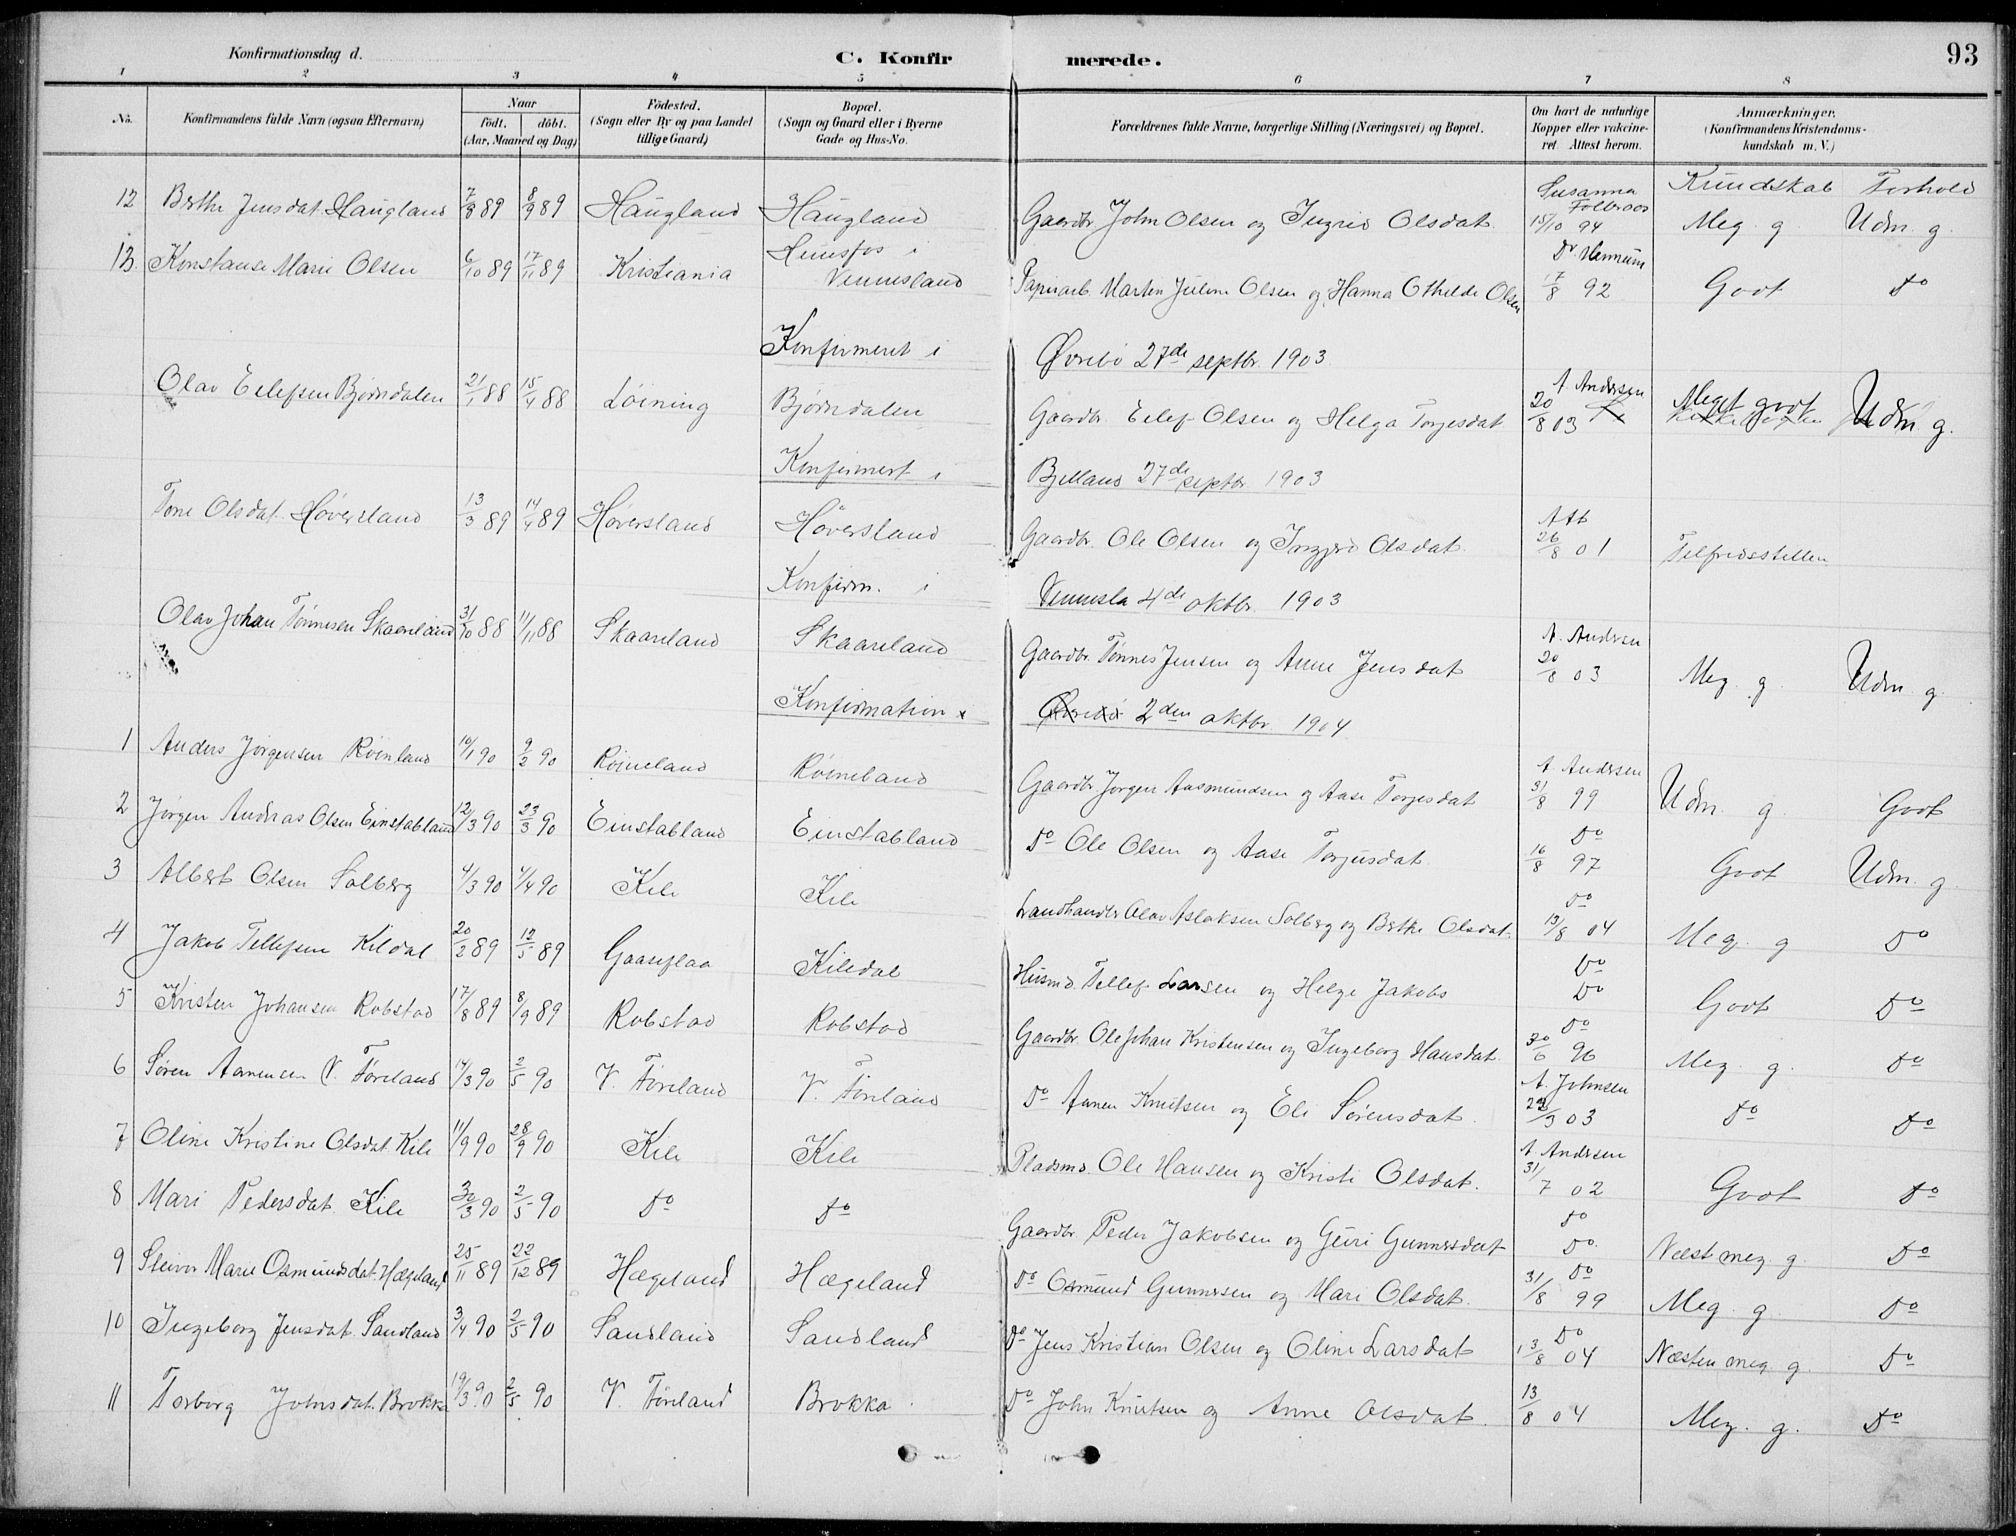 Konfirmationsdag d. C. Konfirmerede. 93
1 2 3 4 5 6 7 8
No. Konfirmandens fulde Navn (ogsaa Efternavn) Naar født. døbt. (Aar, Maaned og Dag) Fødested. (Sogn eller By og paa Landet tillige Gaard) Bopæl. (Sogn og Gaard eller i Byerne Gade og Hus-No. Forældrenes fulde Navne, borgerlige Stilling (Næringsvei) og Bopæl. Om havt de naturlige Kopper eller vakcineret Attest herom. Anmærkninger. (Konfirmandens Kristendomskundskab m. V.)
Kundskab Forhold
12 Berthe Jensdat. Haugland 7/8 89 8/9 89 Haugland Haugland Gaardbr. John Olsen og Ingrid Olsdat. Susanna 15/10 94 Meg. g. Udm g.
13. Konstanse Marie Olsen 6/10 89 17/11 89 Kristiania Hunsfos i Vennesland Papirarb. Martin Juline Olsen og Hanna Othilde Olsen Dr Hennum 17/8 92 Godt Do
Konfirmeret i Øvrebø 27de septbr. 1903
Olav Eilefsen Bjørndalen 21/1 88 15/4 88 Løining Bjørndalen Gaardbr. Eilef Olsen og Helga Torjesdat A Andersen 20/8 03 Meget godt Udm. g.
Konfirmert i Bjelland 27de septbr 1903
Tone Olsdat. Høversland 13/3 89 14/4 89 Høversland Høversland Gaardbr. Ole Olsen og Ingjerd Olsdat. Att 26/8 01 Tilfredsstillen
Konfirm. i Vennesla 4de oktbr. 1903
Olav Johan Tønnesen Skaareland 31/10 88 11/11 88 Skaareland Skaareland Gaardbr. Tønnes Jensen og Anne Jensdat A. Andersen 20/8 03 Meg. g. Udm g.
Konfirmation Øvrebø 2den oktbr. 1904
1 Anders Jørgensen Røinland 10/1 90 9/2 90 Røineland Røineland Gaardbr. Jørgen Aasmundsen og Aase Torjesdat A Andersen 31/8 99 Udm. g. Godt
2 Jørgen Andreas Olsen Einstabland 12/3 90 23/3 90 Einstabland Einstabland Do Ole Olsen og Aase Torjusdat. Do 16/8 97 Godt Udm. g.
3 Albert Olsen Solberg 4/3 90 4/4 90 Kile Kile Landhandler Olav Aslaksen Solberg og Berthe Olsdat. Do 13/8 04 Meg. g Do
4 Jakob Tellefsen Kildal 20/2 89 12/5 89 Gaaseflaa Kiledal Husmd. Tellef Larsen og Helge Jakobs Do Do Godt Do
5 Kristen Johansen Robstad 17/8 89 8/9 89 Robstad Robstad Gaardbr. Ole Johan Kristensen og Ingeborg Hansdat. Do 30/6 96 Meg. g. Do
6 Søren Aanensen V. Føreland 14/3 90 2/5 90 V. Føreland V. Føreland Do Aanen Knutsen og Eli Sørensdat. A. Johnsen 29/9 03 Do Do
7 Oline Kristine Olsdat. Kile 11/9 90 28/9 90 Kile Kile Pladsmd. Ole Hansen og Kristi Olsdat. A Andersen 31/7 02 Godt Do
8 Mari Pedersdat. Kile 30/3 90 2/5 90 Do Do Gaardbr. Peder Jakobsen og Geiri Gunnersdat Do Do Næst meg. g. Do
9 Steivor Marie Osmundsdat. Hægeland 25/11 89 22/12 89 Hægeland Hægeland Do Osmund Gunnersen og Mari Olsdat. Do 31/8 99 Meg. g. Do
10 Ingeborg Jensdat. Sandland 3/4 90 2/5 90 Sandland Sandland Do Jens Kristian Olsen og Oline Larsdat Do 13/8 04 Næsten meg. g. Do
11 Torborg Johnsdat. Brokke 19/3 90 2/5 90 V. Føreland Brokka. Do John Knutsen og Anne Olsdat. 13/8 04 Meg. g. Do